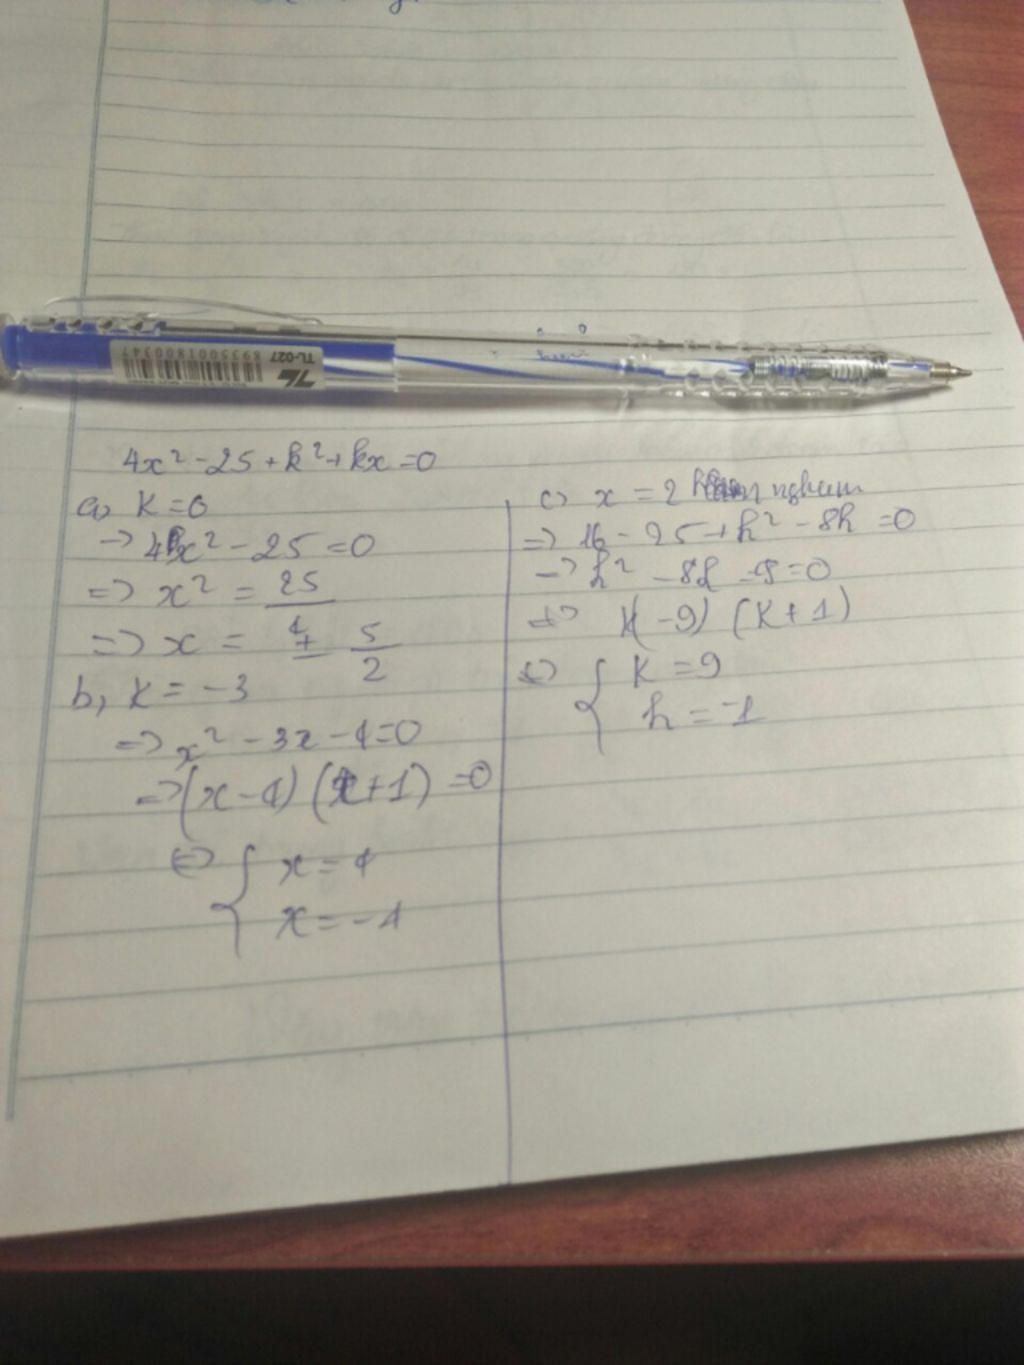 TL-027
8935001800347
4x² - 25 + k² + kx = 0
a, K = 0
→ 4x² - 25 = 0
=> x² = 25/4
=> x = ± 5/2
b, K = -3
=> x² - 3x - 4 = 0
=> (x - 4) (x + 1) = 0
<=> { x = 4
x = -1
c, x = 2 nghiem
=> 16 - 25 + k² - 8k = 0
→ k² - 8k - 9 = 0
=> K - 9) (K + 1)
<=> { K = 9
k = -1